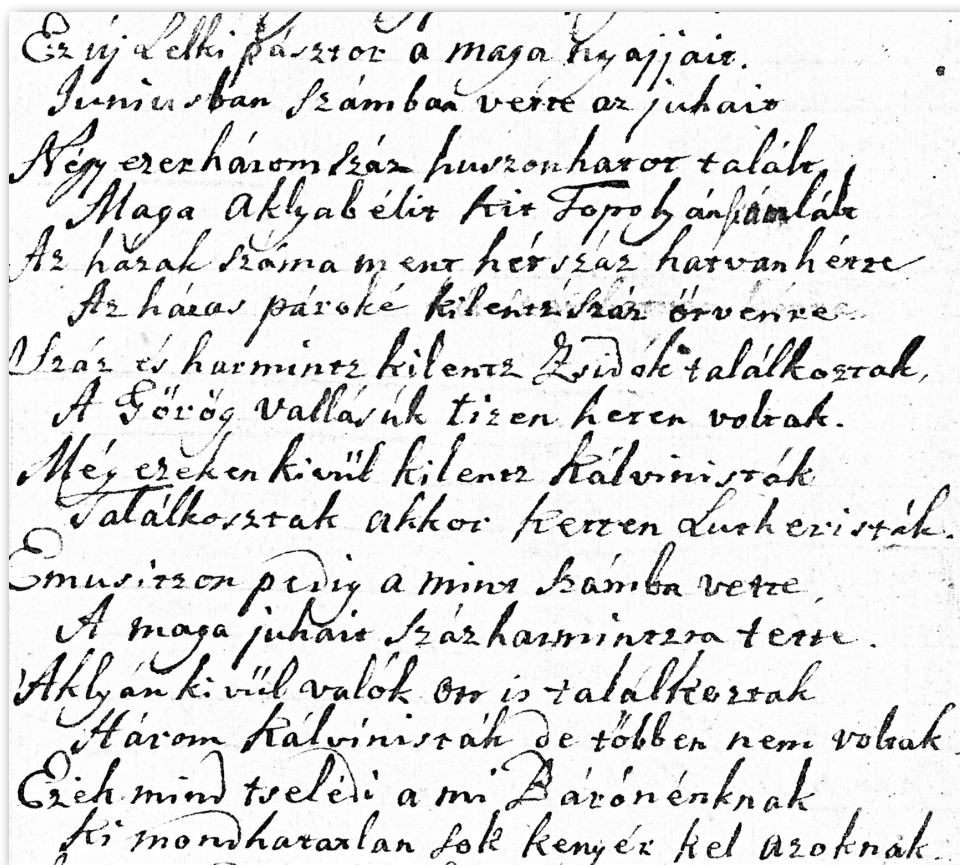 Ez új Lelki pásztor a maga nyajjait.
Juniusban számban vette az juhait
Négy ezerháromszáz huszonhatot talált,
Maga Aklyabélit kit Topolyán
Az házak száma ment hétszáz hatvanhétre
Az házas pároké kilentzszáz ötvenre
Száz és harmintz kilentz Zsidók találkoztak,
A Görög vallásúk tizen heten voltak.
Még ezeken kivűl kilentz Kálvinisták
Találkosztak akkor ketten Lutheristák.
Emusitzon pedig a mint számba vette,
A maga juhait százharmintzra tette.
Aklyán kivűl valók ott is találkoztak
Három Kálvinisták de többen nem voltak
Ezek mind tselédi a mi Bárónénknak
Ki mondhatatlan sok kenyér kel azoknak